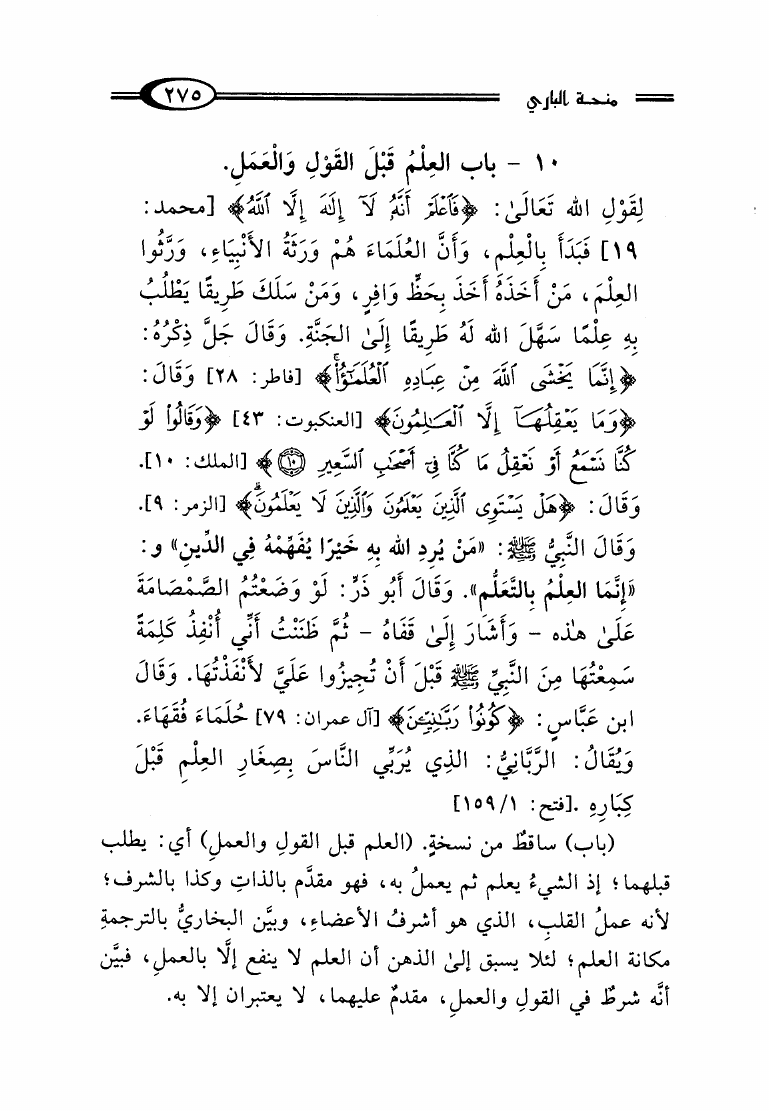 منحة الباري ٢٧٥
١٠ - باب العِلْمُ قَبْلَ القَوْلِ وَالْعَمَلِ.
لِقَوْلِ الله تَعَالَىٰ: ﴿فَٱعْلَمْ أَنَّهُۥ لَآ إِلَٰهَ إِلَّا ٱللَّهُ﴾ [محمد:
١٩] فَبَدَأَ بِالْعِلْمِ، وَأَنَّ العُلَمَاءَ هُمْ وَرَثَةُ الأَنْبِيَاءِ، وَرَّثُوا
العِلْمَ، مَنْ أَخَذَهُ أَخَذَ بِحَظٍّ وَافِرٍ، وَمَنْ سَلَكَ طَرِيقًا يَطْلُبُ
بِهِ عِلْمًا سَهَّلَ الله لَهُ طَرِيقًا إِلَىٰ الجَنَّةِ. وَقَالَ جَلَّ ذِكْرُهُ:
﴿إِنَّمَا يَخْشَى ٱللَّهَ مِنْ عِبَادِهِ ٱلْعُلَمَٰٓؤُا۟ۗ﴾ [فاطر: ٢٨] وَقَالَ:
﴿وَمَا يَعْقِلُهَآ إِلَّا ٱلْعَٰلِمُونَ﴾ [العنكبوت: ٤٣] ﴿وَقَالُوا۟ لَوْ
كُنَّا نَسْمَعُ أَوْ نَعْقِلُ مَا كُنَّا فِىٓ أَصْحَٰبِ ٱلسَّعِيرِ ١٠﴾ [الملك: ١٠].
وَقَالَ: ﴿هَلْ يَسْتَوِى ٱلَّذِينَ يَعْلَمُونَ وَٱلَّذِينَ لَا يَعْلَمُونَۗ﴾ [الزمر: ٩].
وَقَالَ النَّبِيُّ ﷺ: «مَنْ يُرِدِ الله بِهِ خَيْرًا يُفَهِّمْهُ فِي الدِّينِ» و:
«إِنَّمَا العِلْمُ بِالتَّعَلُّمِ». وَقَالَ أَبُو ذَرٍّ: لَوْ وَضَعْتُمُ الصَّمْصَامَةَ
عَلَىٰ هٰذِه - وَأَشَارَ إِلَىٰ قَفَاهُ - ثُمَّ ظَنَنْتُ أَنِّي أُنْفِذُ كَلِمَةً
سَمِعْتُهَا مِنَ النَّبِيِّ ﷺ قَبْلَ أَنْ تُجِيزُوا عَلَيَّ لأَنْفَذْتُهَا. وَقَالَ
ابن عَبَّاسٍ: ﴿كُونُوا۟ رَبَّٰنِيِّـۧنَ﴾ [آل عمران: ٧٩] حُلَمَاءَ فُقَهَاءَ.
وَيُقَالُ: الرَّبَّانِيُّ: الذِي يُرَبِّي النَّاسَ بِصِغَارِ العِلْمِ قَبْلَ
كِبَارِهِ .[فتح: ١/١٥٩]
(باب) ساقطٌ من نسخةٍ. (العلم قبل القول والعملِ) أي: يطلب
قبلهما؛ إذ الشيءُ يعلم ثم يعملُ به، فهو مقدَّم بالذاتِ وكذا بالشرف؛
لأنه عملُ القلبِ، الذي هو أشرفُ الأعضاءِ، وبيَّن البخاريُّ بالترجمةِ
مكانة العلم؛ لئلا يسبق إلىٰ الذهن أن العلم لا ينفع إلَّا بالعملِ، فبيَّن
أنَّه شرطٌ في القولِ والعملِ، مقدمٌ عليهما، لا يعتبران إلا به.